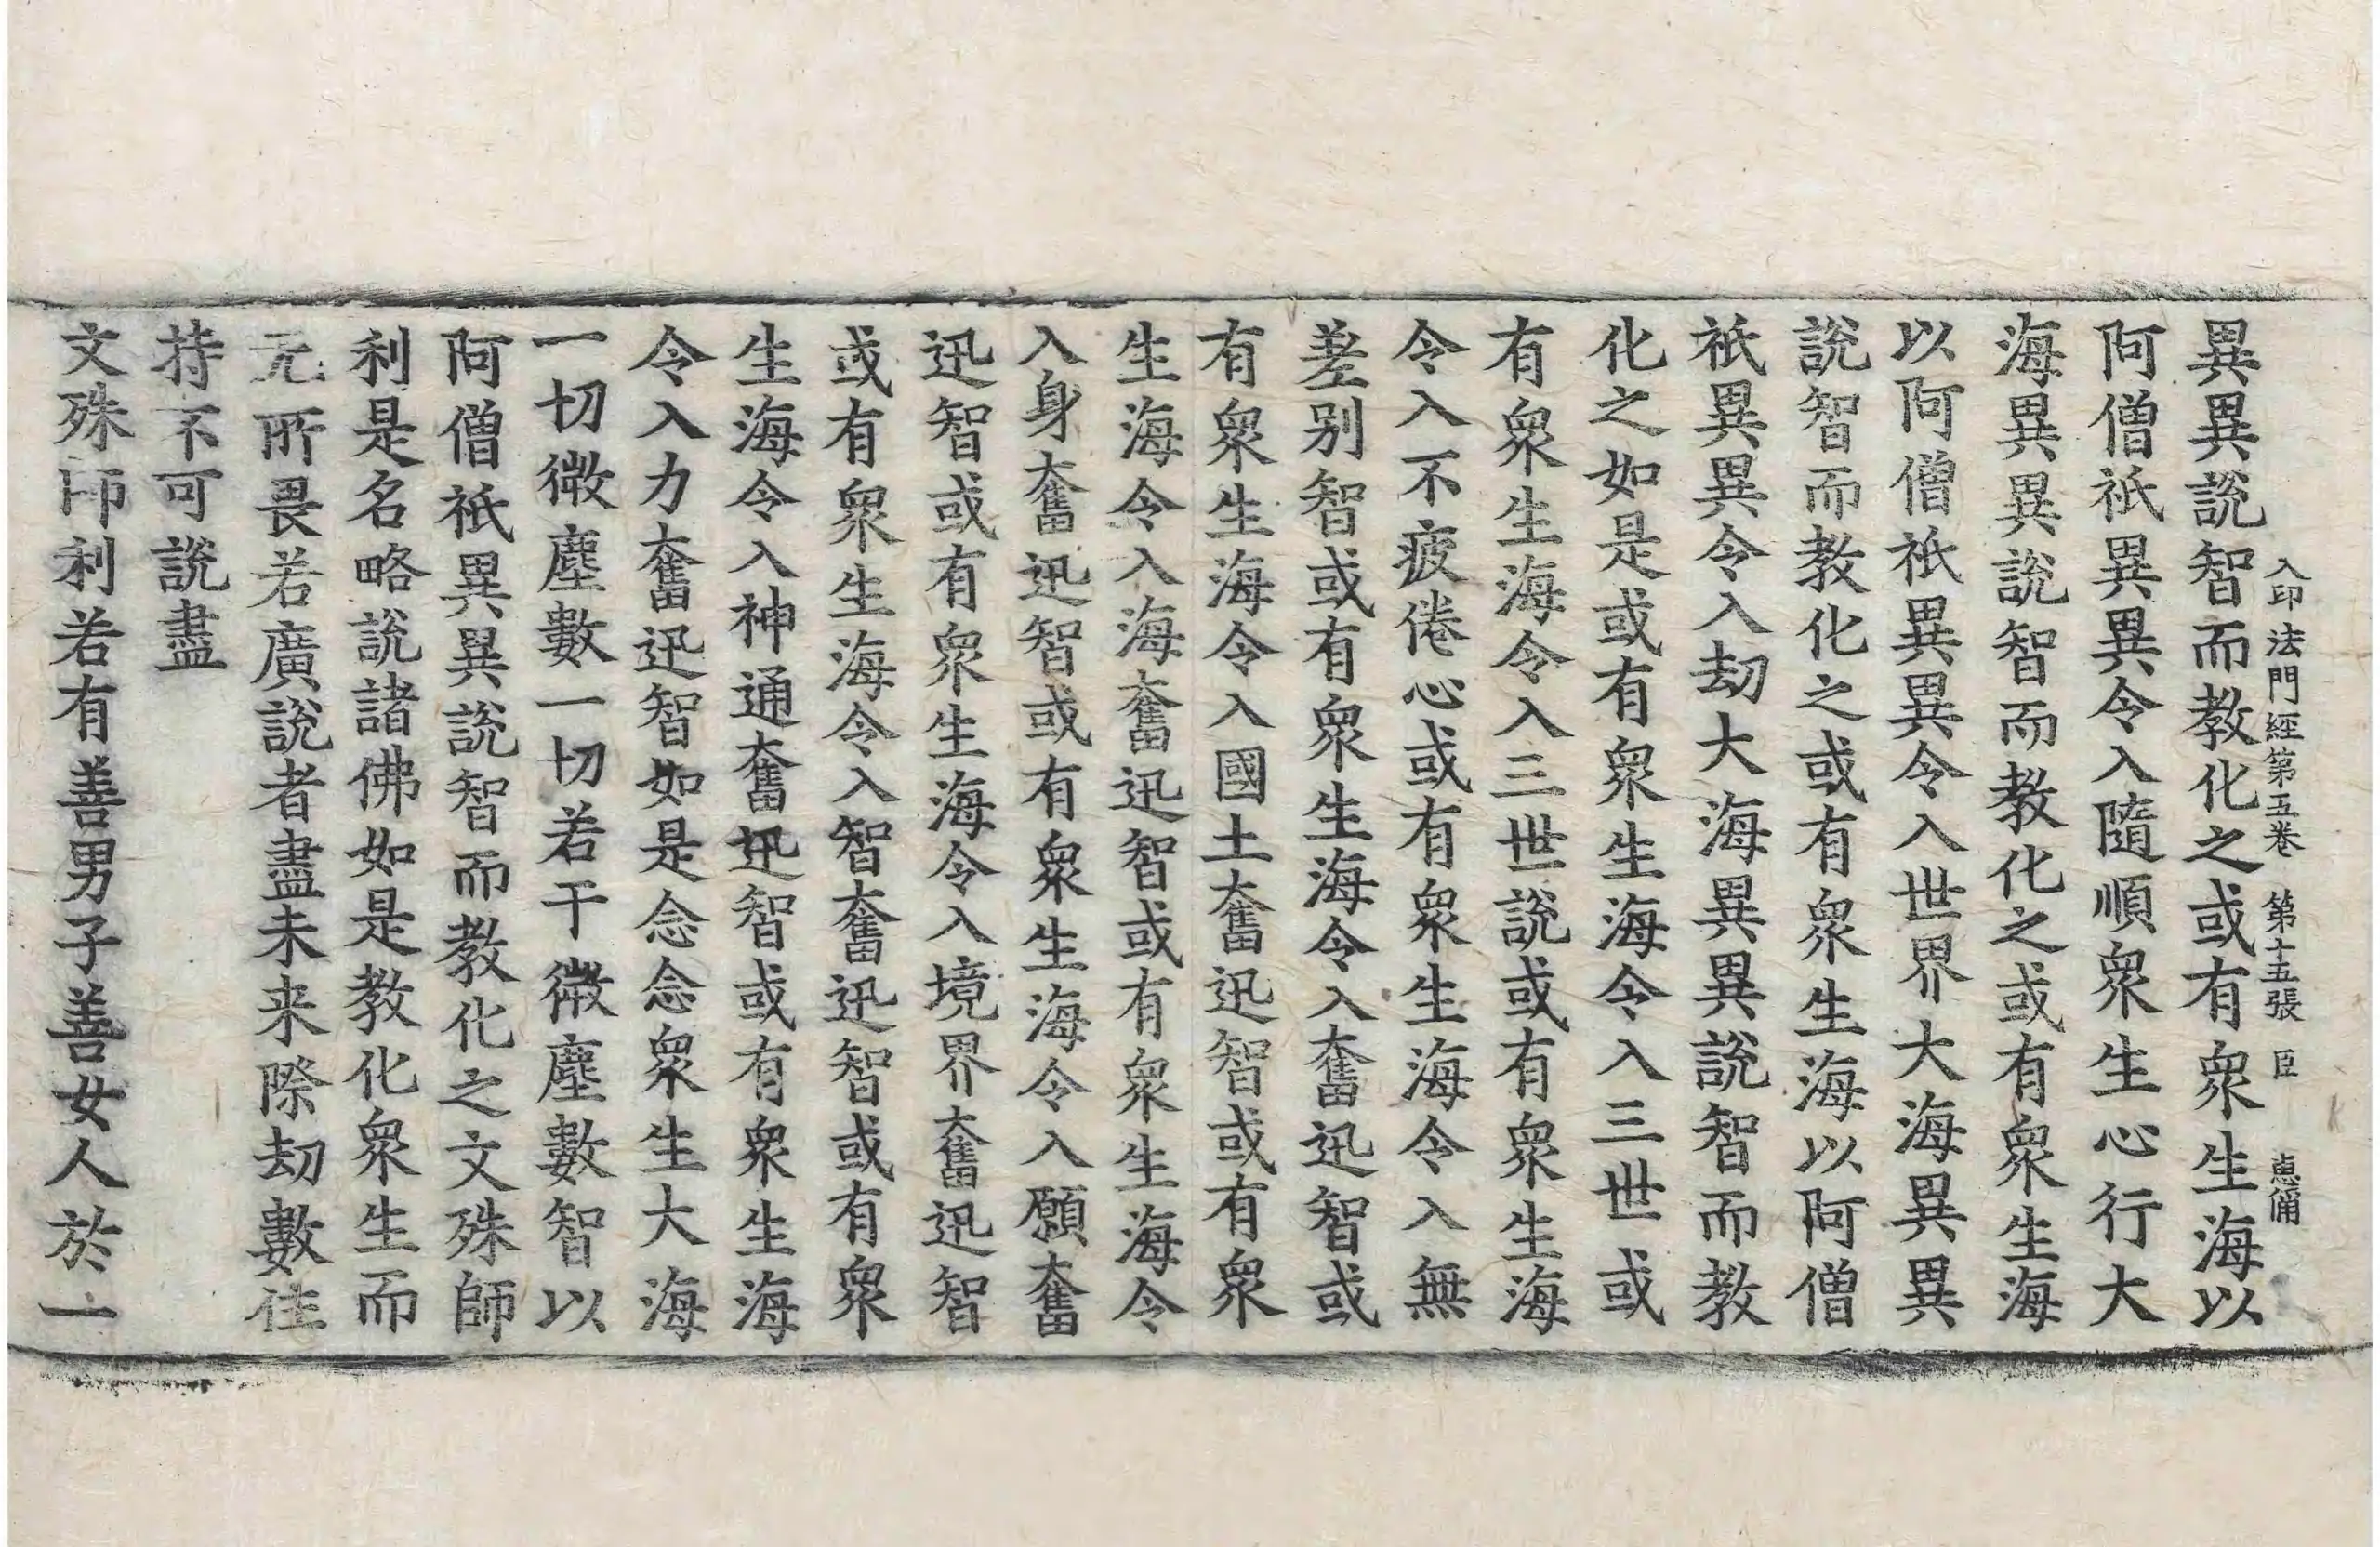 入印法門經第五卷 第十五張 臣
異異說智而教化之或有眾生海以
阿僧祇異異令入隨順眾生心行大
海異異說智而教化之或有眾生海
以阿僧祇異異令入世界大海異異
說智而教化之或有眾生海以阿僧
祇異異令入劫大海異異說智而教
化之如是或有眾生海令入三世或
有眾生海令入三世說或有眾生海
令入不疲倦心或有眾生海令入無
差别智或有眾生海令入奮迅智或
有眾生海令入國土奮迅智或有眾
生海令入海奮迅智或有眾生海令
入身奮迅智或有眾生海令入願奮
迅智或有眾生海令入境界奮迅智
或有眾生海令入智奮迅智或有眾
生海令入神通奮迅智或有眾生海
令入力奮迅智如是念念眾生大海
一切微塵數一切若干微塵數智以
阿僧祇異異說智而教化之文殊師
利是名略說諸佛如是教化眾生而
无所畏若廣說者盡未来際劫數住
持不可說盡
文殊師利若有善男子善女人於一